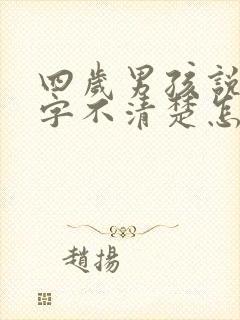 四歲男孩說
字不清楚怎
趙揚